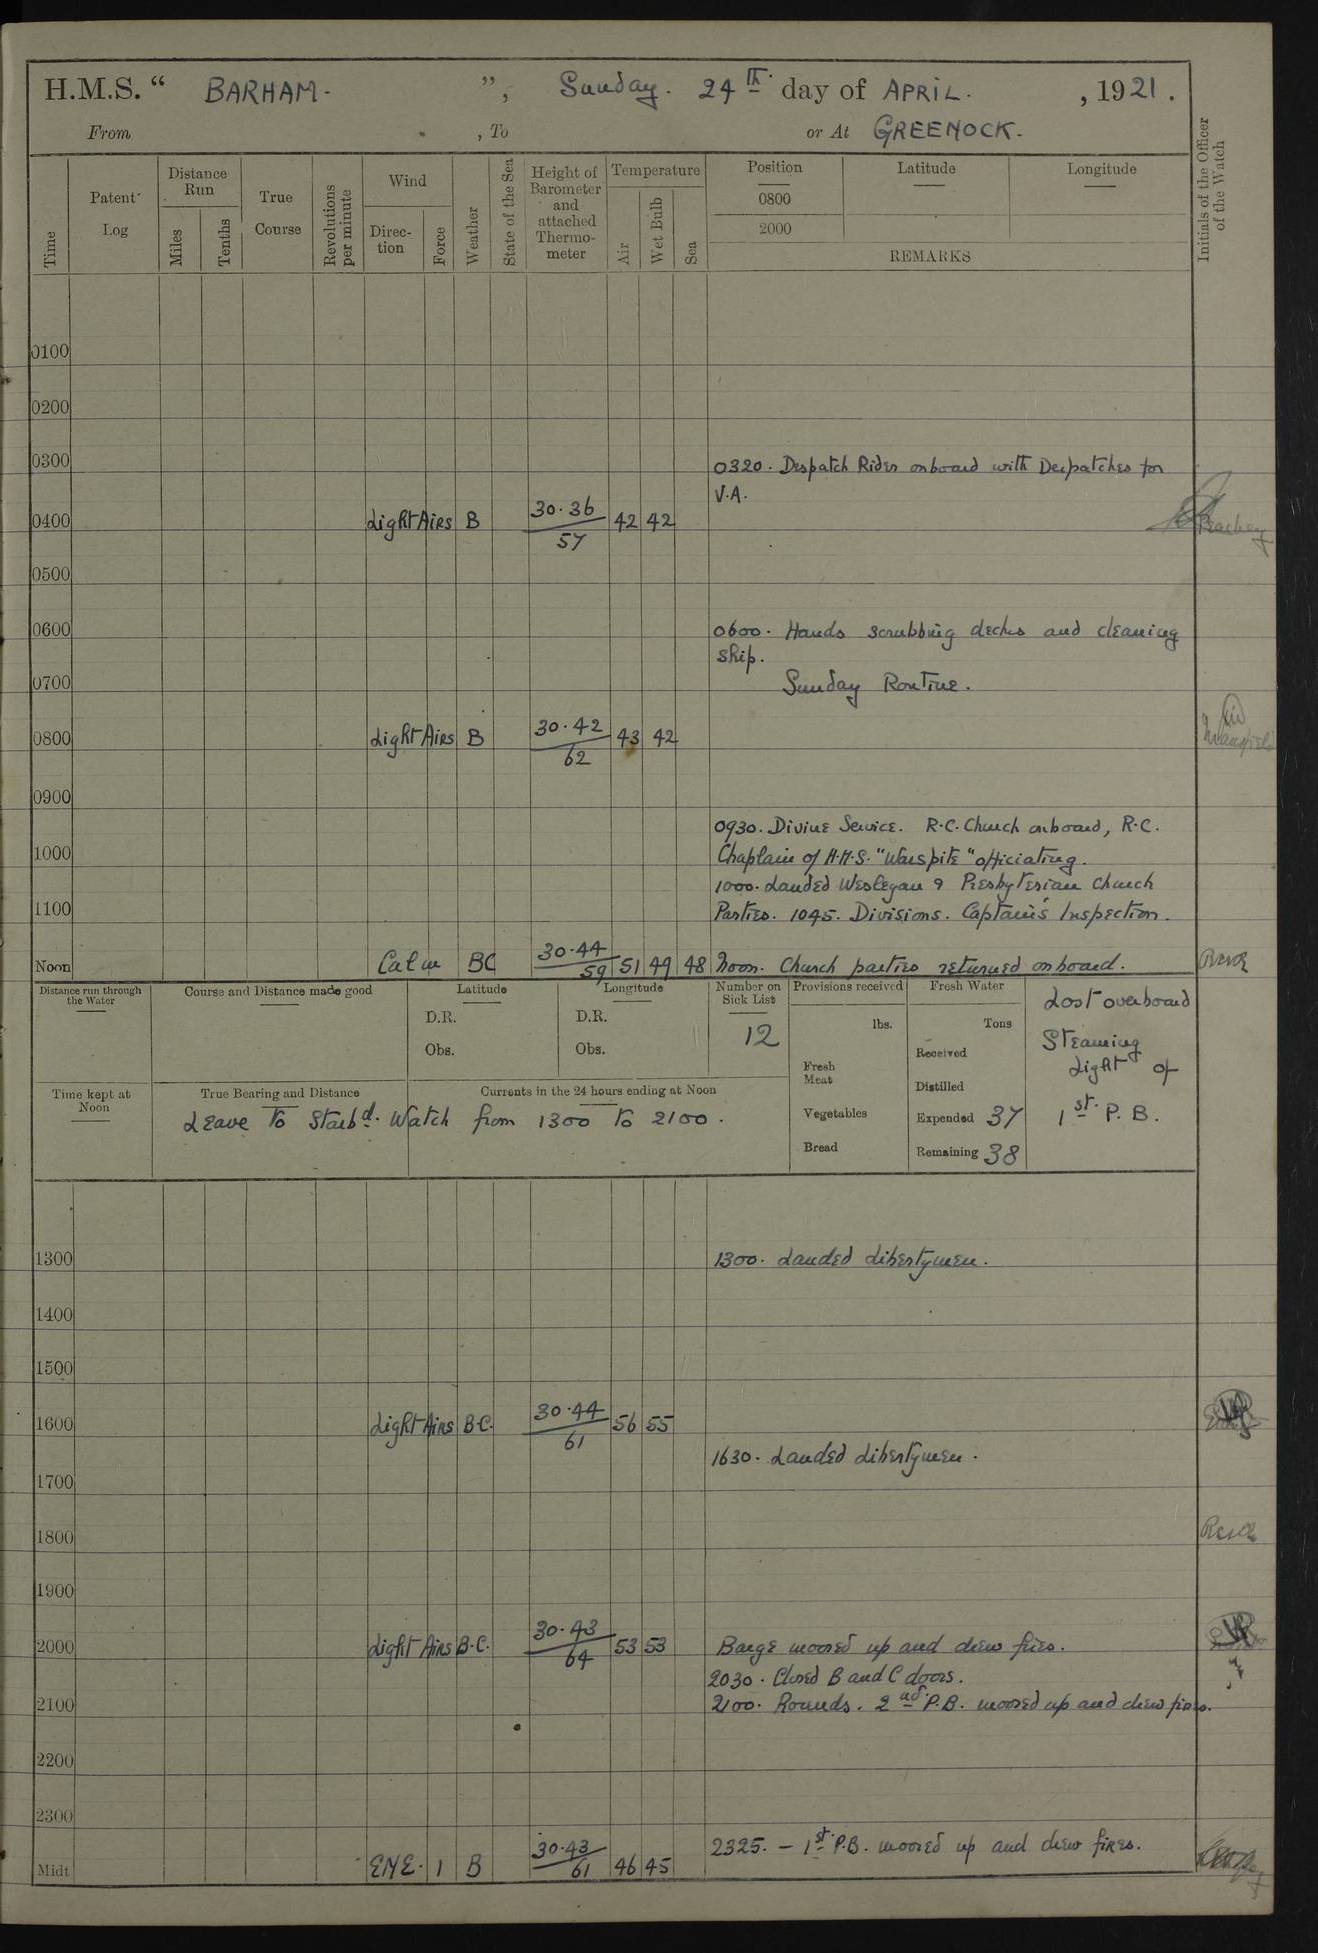 H.M.S. “ BARHAM. ”, Sunday. 24th day of APRIL. , 1921.
From , To or At GREENOCK.
Time
Patent Log
Distance Run
Miles
Tenths
True Course
Revolutions per minute
Wind
Direc-tion
Force
Weather
State of the Sea
Height of Barometer and attached Thermo-meter
Temperature
Air
Wet Bulb
Sea
Position
0800
2000
Latitude
Longitude
REMARKS
Initials of the Officer of the Watch
0100
0200
0300
0320. Despatch Rider onboard with Despatches for
V.A.
0400 Light Airs B 30.36 57 42 42
0500
0600
0600. Hands scrubbing decks and cleaning
ship.
0700
Sunday Routine.
0800 Light Airs B 30.42 62 43 42
0900
0930. Divine Service. R.C. Church onboard, R.C.
1000
Chaplain of H.M.S. "Warspite" officiating.
1000. Landed Wesleyan & Presbyterian Church
1100
Parties. 1045. Divisions. Captain's Inspection.
Noon Calm BC 30.44 59 51 49 48 Noon. Church parties returned onboard.
Distance run through the Water
Course and Distance made good
Latitude
D.R.
Obs.
Longitude
D.R.
Obs.
Number on Sick List
12
Provisions received
lbs.
Fresh Meat
Vegetables
Bread
Fresh Water
Tons
Received
Distilled
Expended 37
Remaining 38
Lost overboard
Steaming
Light of
1st. P.B.
Time kept at Noon
True Bearing and Distance
Currents in the 24 hours ending at Noon
Leave to Starbd. Watch from 1300 to 2100.
1300 1300. Landed libertymen.
1400
1500
1600 Light Airs B.C. 30.44 61 56 55
1630. Landed libertymen.
1700
1800
1900
2000 Light Airs B.C. 30.43 64 53 53 Barge moored up and drew fires.
2030. Closed B and C doors.
2100 2100. Rounds. 2nd. P.B. moored up and drew fires.
2200
2300
2325. – 1st. P.B. moored up and drew fires.
Midt ENE. 1 B 30.43 61 46 45